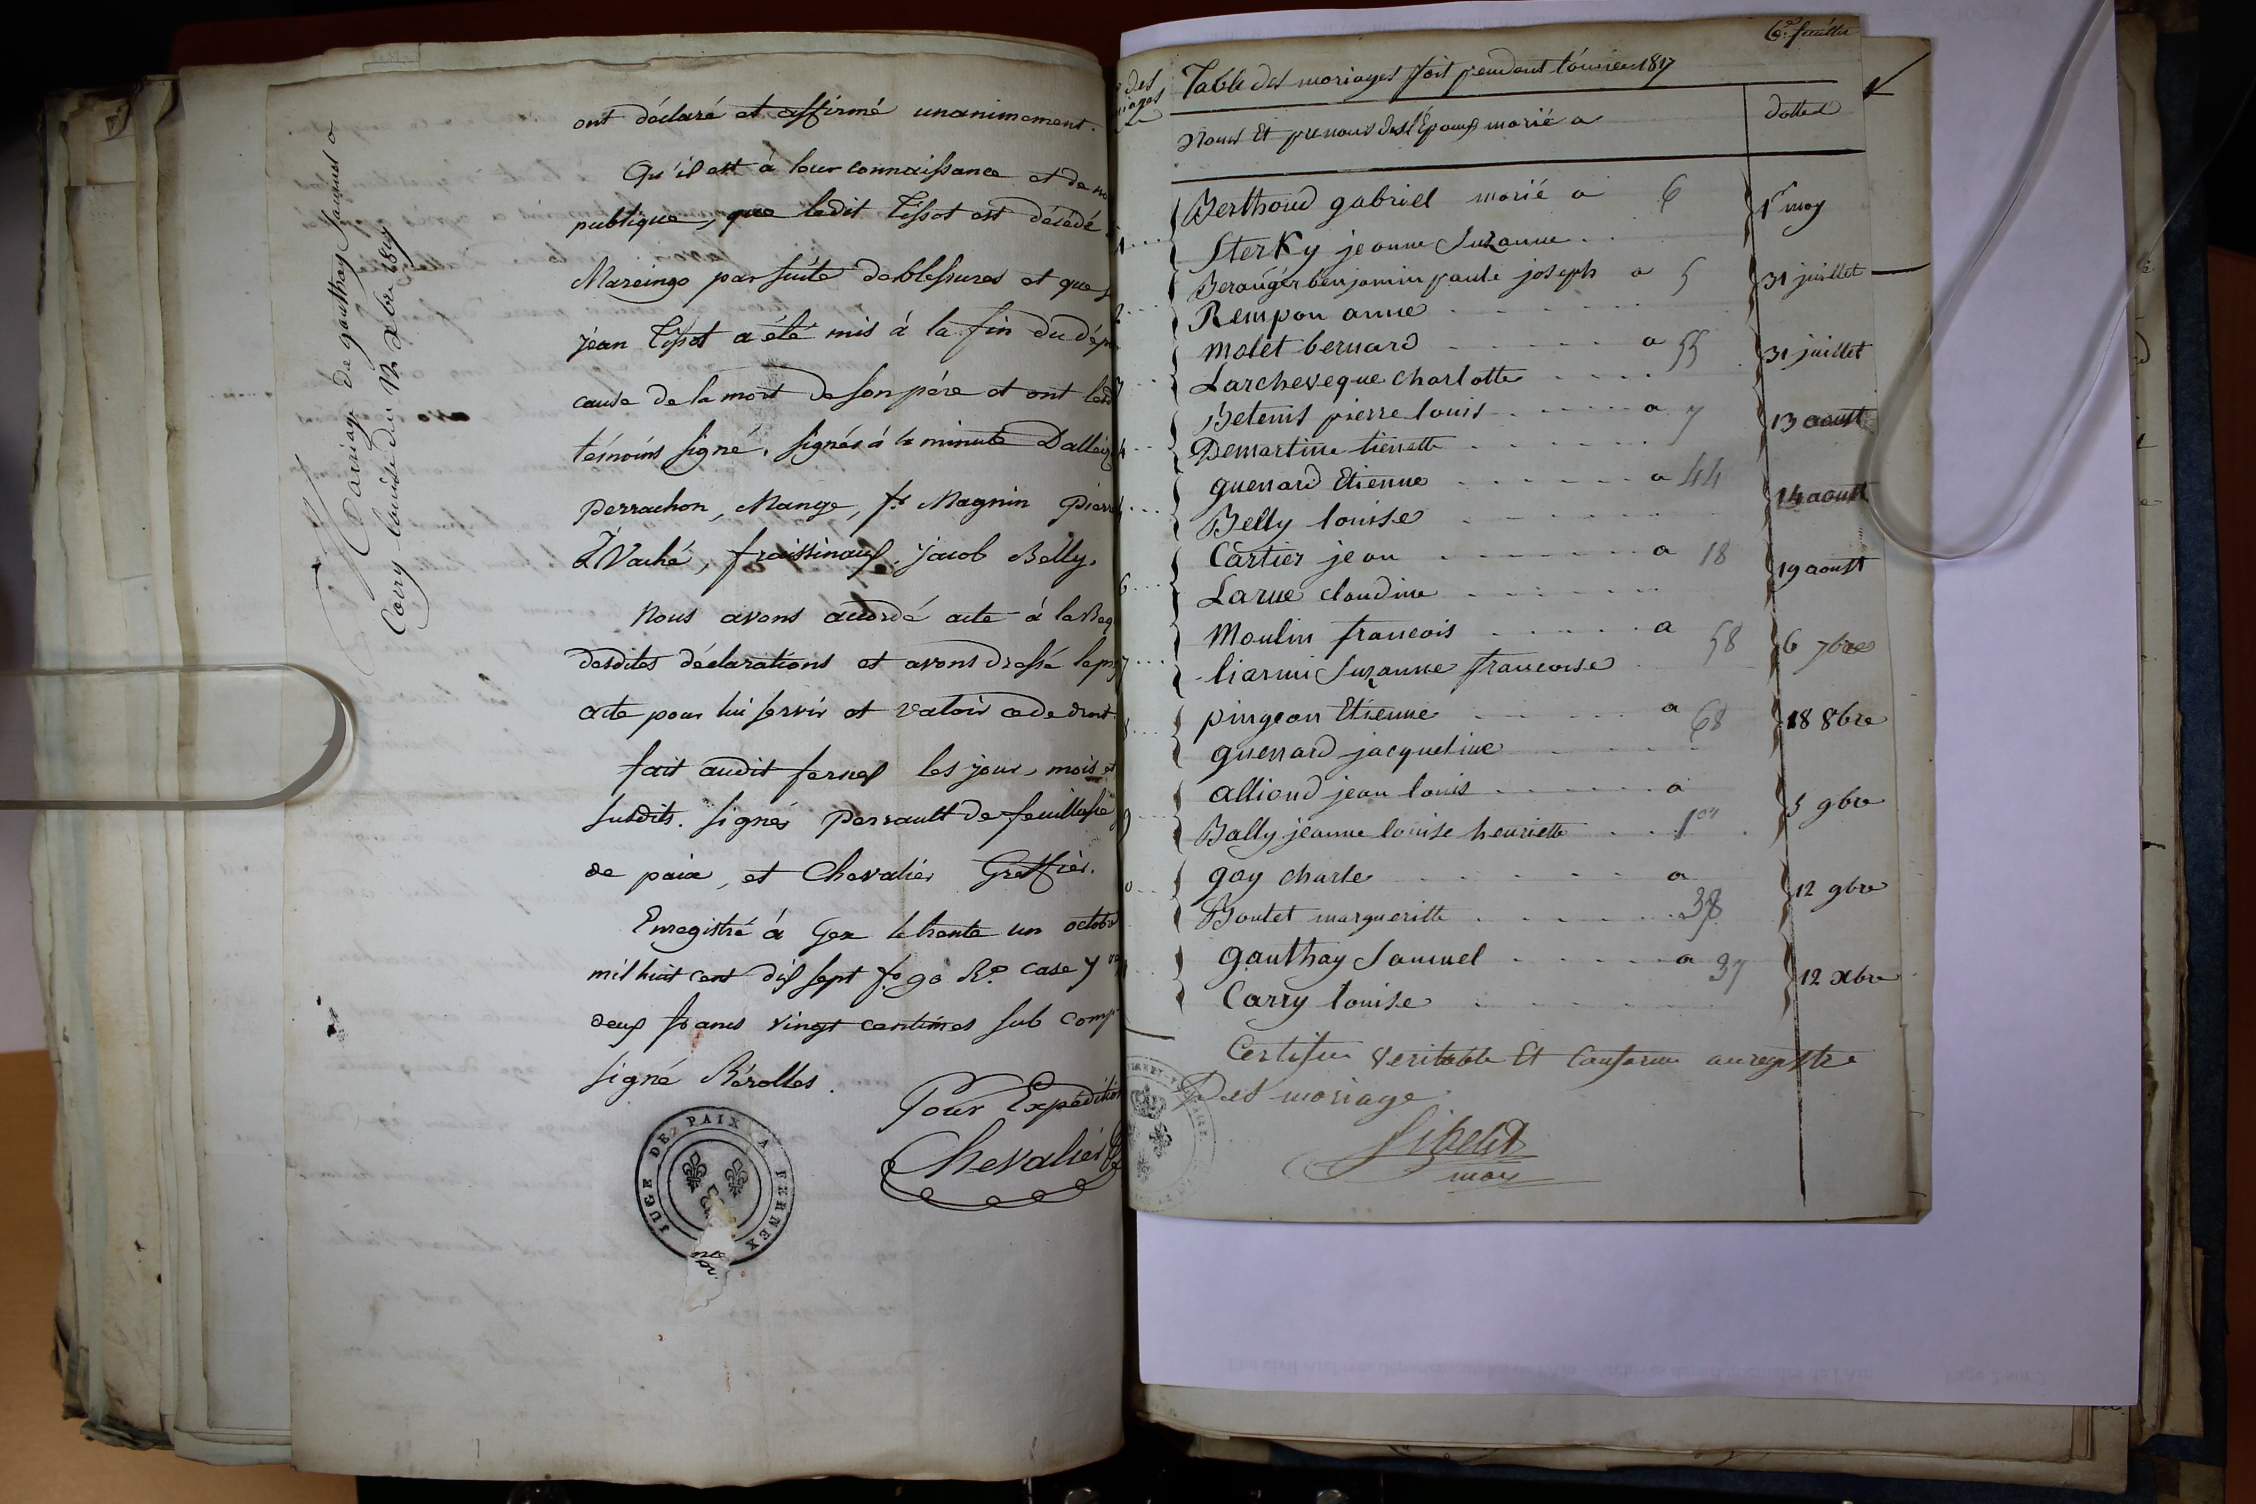 ont déclaré et affirmé unanimement.
Qu'il est à leur connaissance et de no
publique, que ledit Tissot est décédé
Mareingo par suite de blessures et que
jean Tissot a été mis à la fin du dép
cause de la mort de son père et ont
témoins signé. signés à la minute Dalleiz
perrachon, Mange, fs. Magnin pierre
Vaché, fraissinaux, jacob Belly.
Nous avons accordé acte à la Req
desdites déclarations et avons dressé le pr
acte pour lui servir et valoir ce de droit
fait audit fernex les jour, mois et
susdits. signés perrault de feuillasse
de paix, et Chevalier Greffier.
Enregistré à Gex le trente un octobre
mil huit cent dix sept fo. 90 Ro. case 7
deux francs vingt centimes sub comp
signé Bérolles.
Pour Expédition
Chevalier
JUGE DE PAIX A FERNEX
mariage de gauthay Samuel a
Carry louise du 12 xbre 1817
6e. feuillet
des
iages
Table des mariages fait pendant l'année 1817
Noms Et prenoms des Epoux marié a
dattes
Berthoud gabriel marié a 6
1er may
Sterky jeanne Suzanne
Beranger benjamin paule joseph a 5
31 juillet
Rempon anne
molet bernard a 55
31 juillet
Larcheveque charlotte
Betems pierre louis a 7
13 aoust
Demartine lienette
guenard Etienne a 44
14 aoust
Belly louise
Cartier jean a 18
19 aoust
6
Larue claudine
Moulin francois a 58
6 7bre
7
liarmi Suzanne francoise
pingeon Etienne a 68
18 8bre
guenard jacqueline
alliond jean louis a
5 9bre
9
Bally jeanne louise henriette 1er
goy charle a
12 9bre
0
Boutet margueritte 38
gauthay Samuel a 37
12 xbre
Carry louise
Certifie veritable Et Conforme au registre
Des mariage